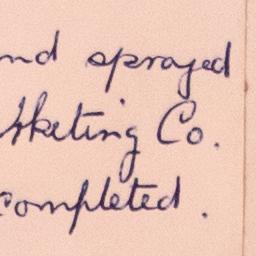 nd sprayed
keting Co.
completed.